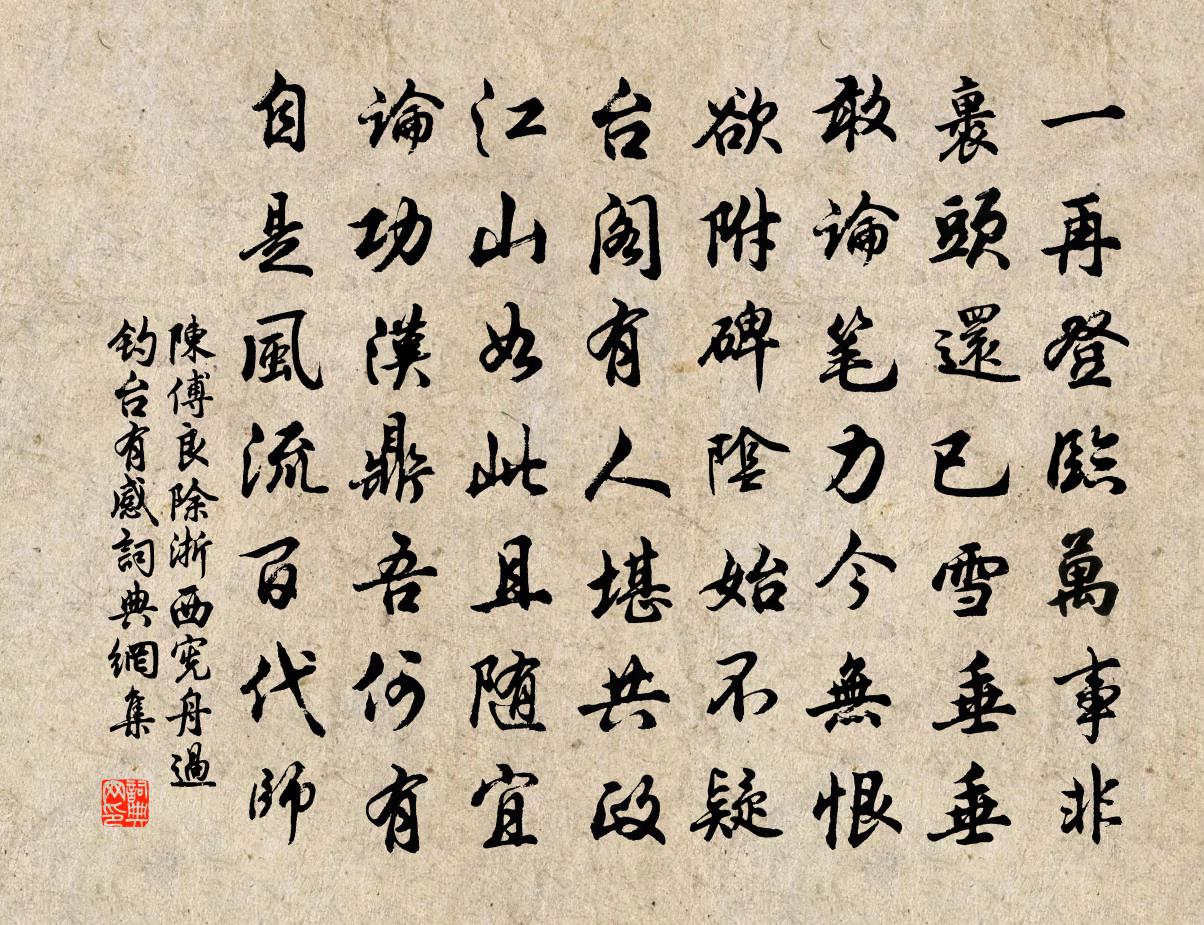 一再登臨萬事非
裹頭還已雪垂垂
敢論笔力今無恨
欲附碑陰始不疑
台阁有人堪共政
江山如此且随宜
論功漢鼎吾何有
自是風流百代師
陳傅良除浙西宪舟過
钓台有感詞典網集
詞典
网印